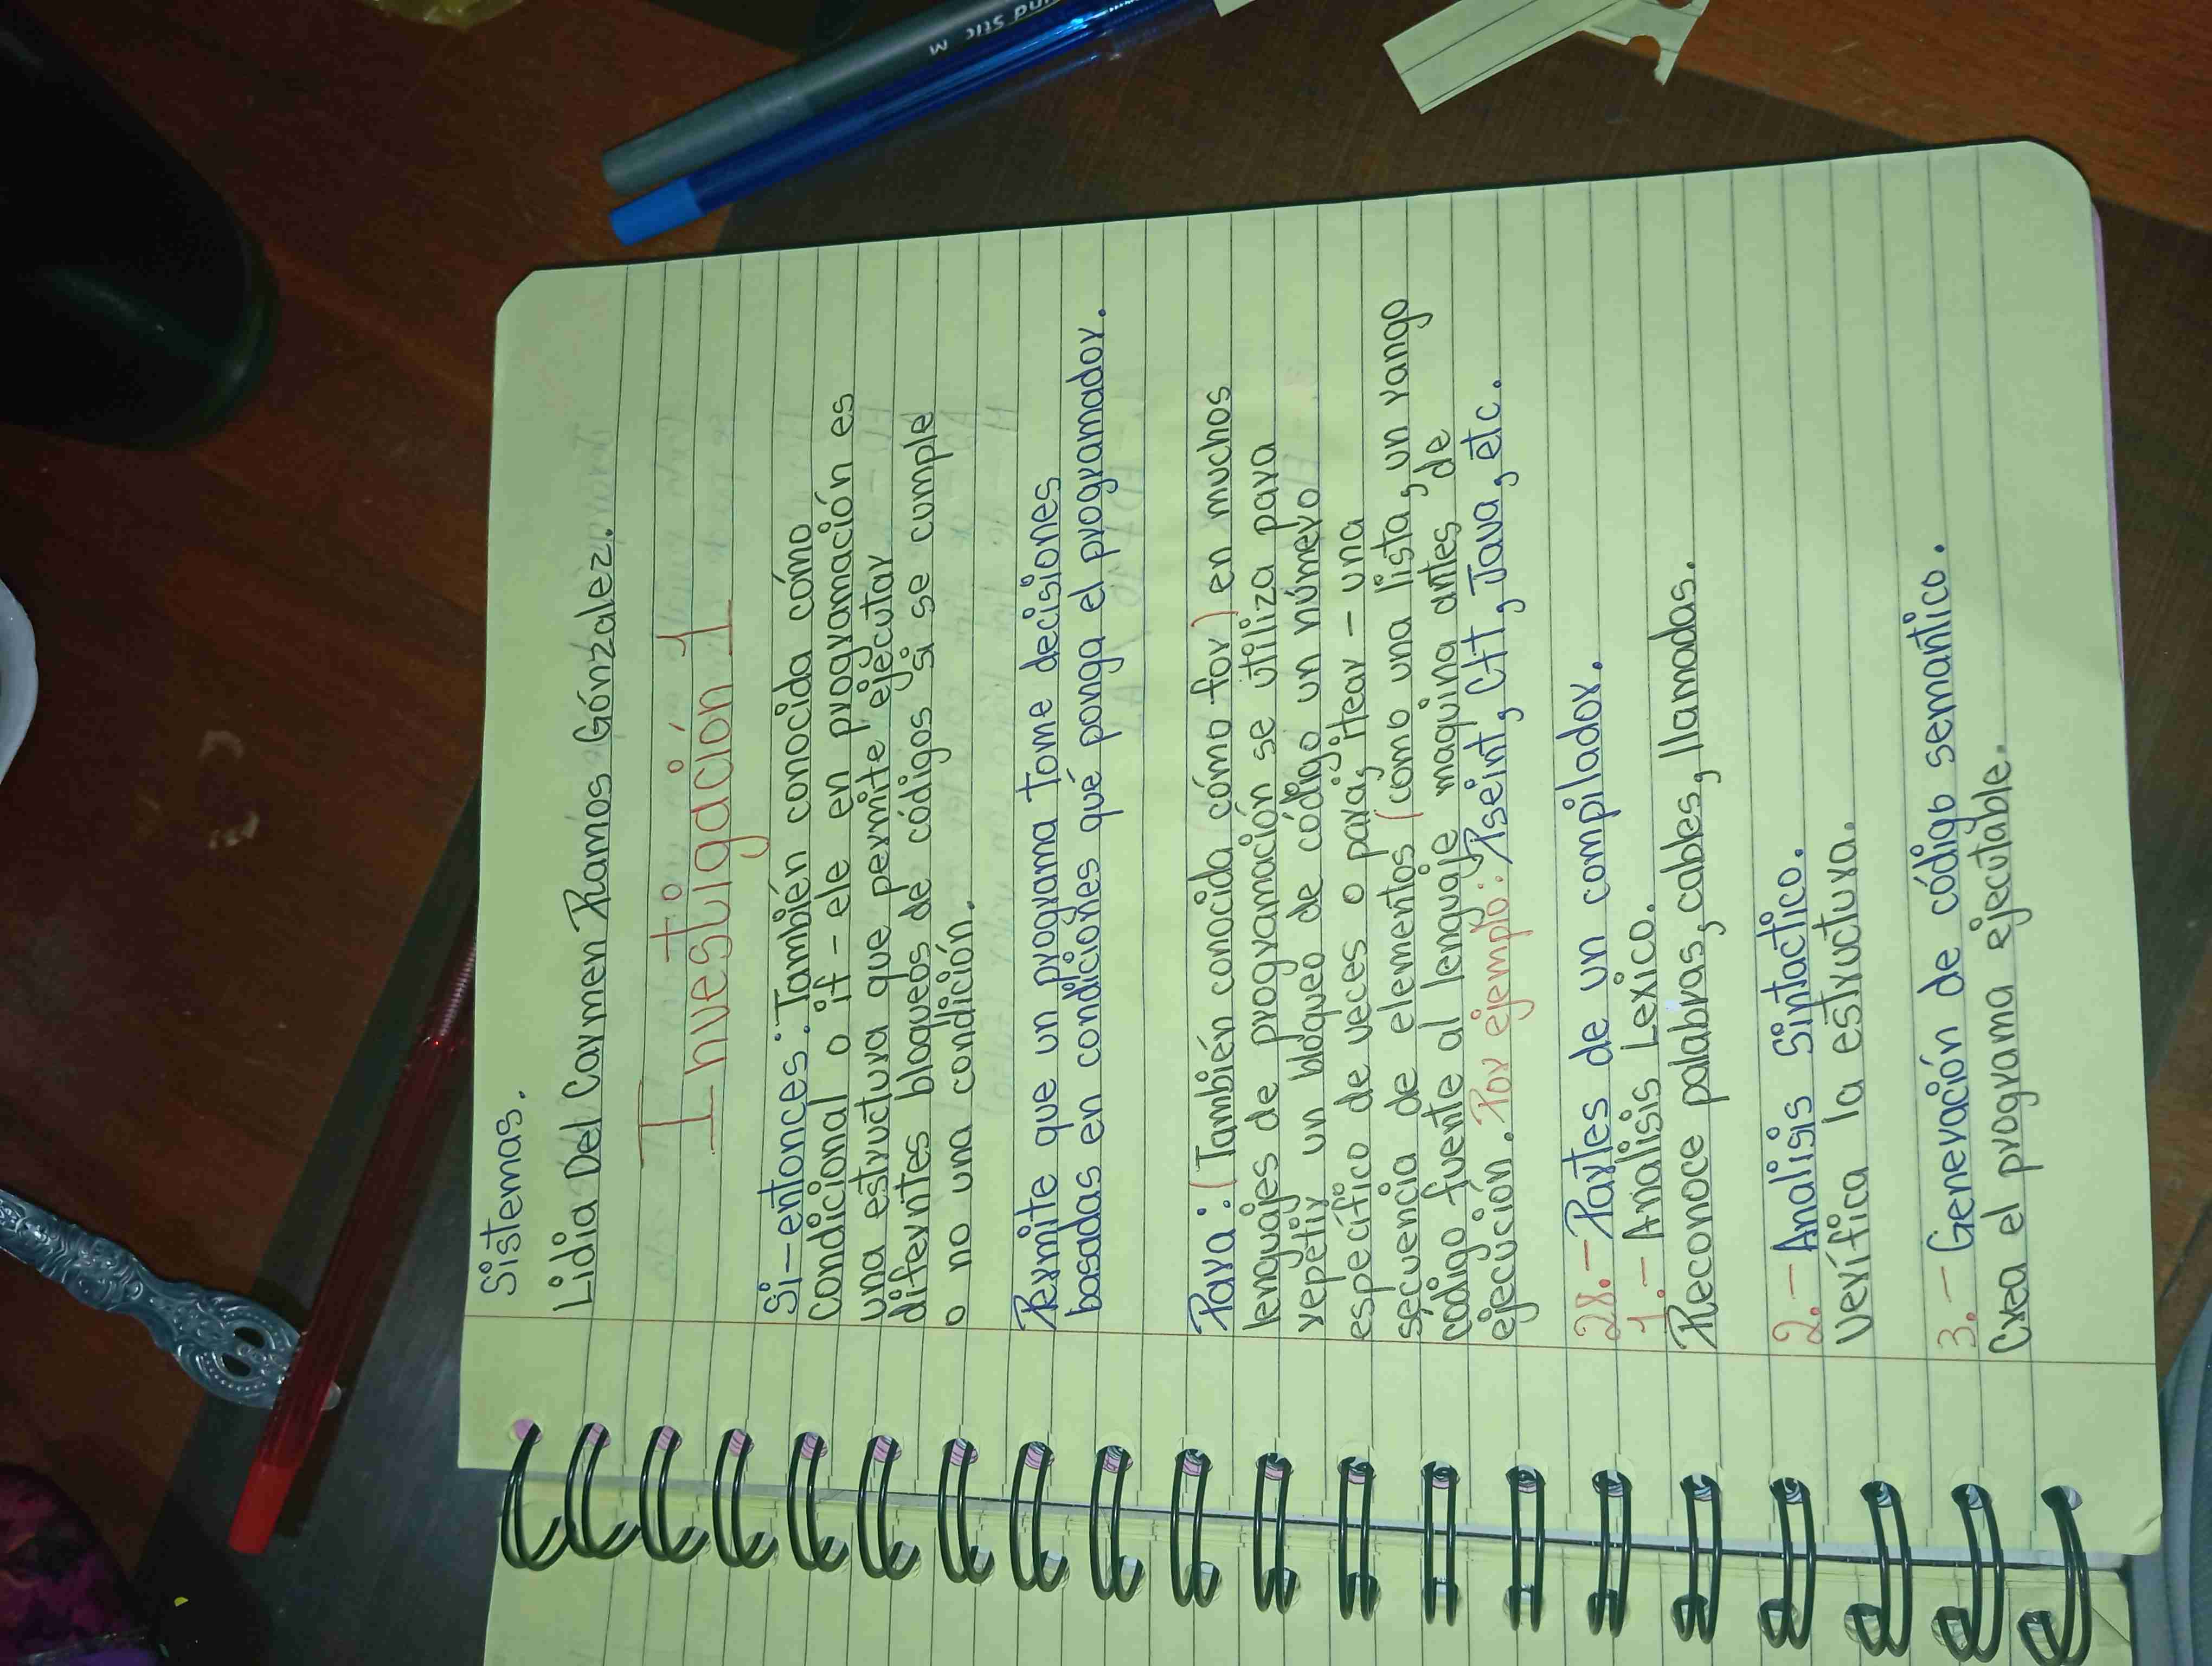 Sistemas.
Lidia Del Carmen Ramos Gónzalez.
Investigación 1
Si-entonces: También conocida cómo
condicional o if - ele en programación es
una estructura que permite ejecutar
diferntes bloques de códigos si se cumple
o no una condición.
Permite que un programa Tome decisiones
basadas en condiciones qué ponga el programador.
Para: (También conocida cómo for) en muchos
lenguajes de programación se utiliza para
repetir un bloqueo de código un número
específico de veces o para; itear - una
secuencia de elementos (como una lista, un rango
codigo fuente al lenguaje maquina antes de
ejecución. Por ejemplo: Pseint, C++, Java, etc.
28.- Partes de un compilador.
1.- Analisis Lexico.
Reconoce palabras, cables, llamadas.
2.- Analisis Sintactico.
Verifica la estructura.
3.- Generación de código semantico.
Crea el programa ejecutable.
nd Stic M